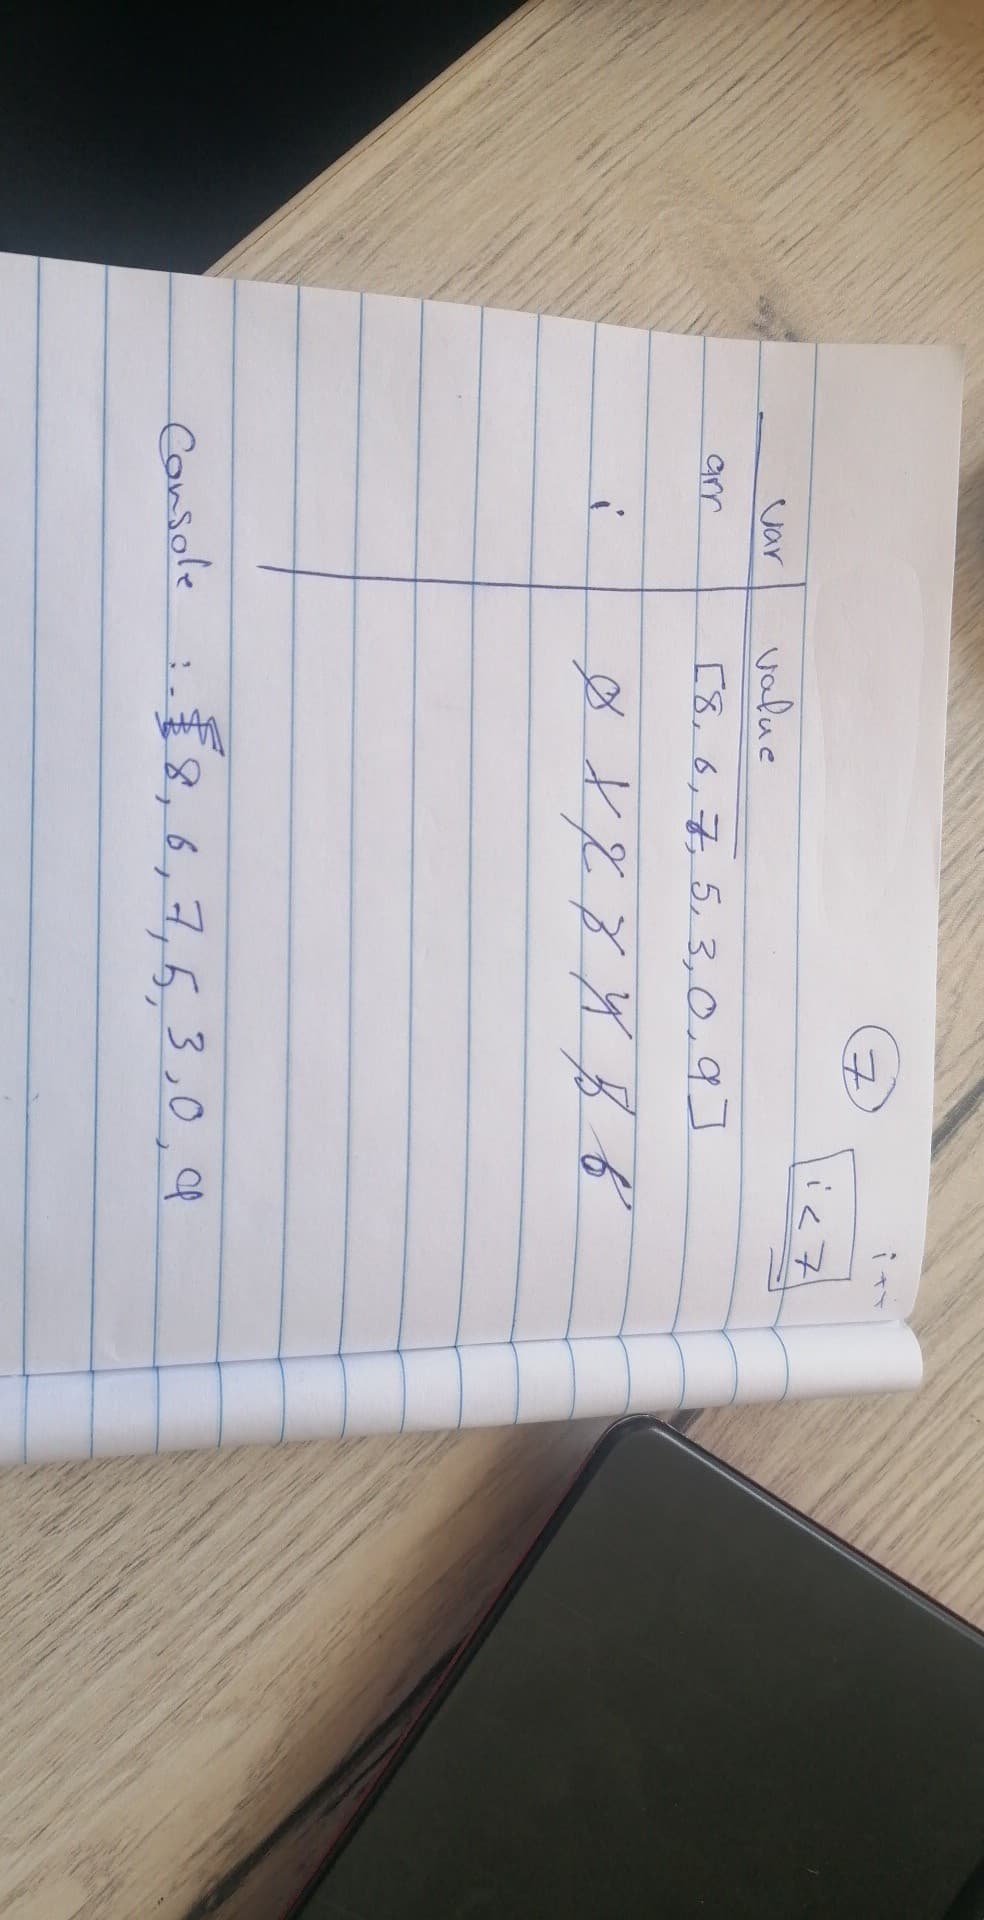 i++
7
i < 7
var value
arr [8, 6, 7, 5, 3, 0, 9]
i 0 1 2 3 4 5 6
Console :- 8, 6, 7, 5, 3, 0, 9